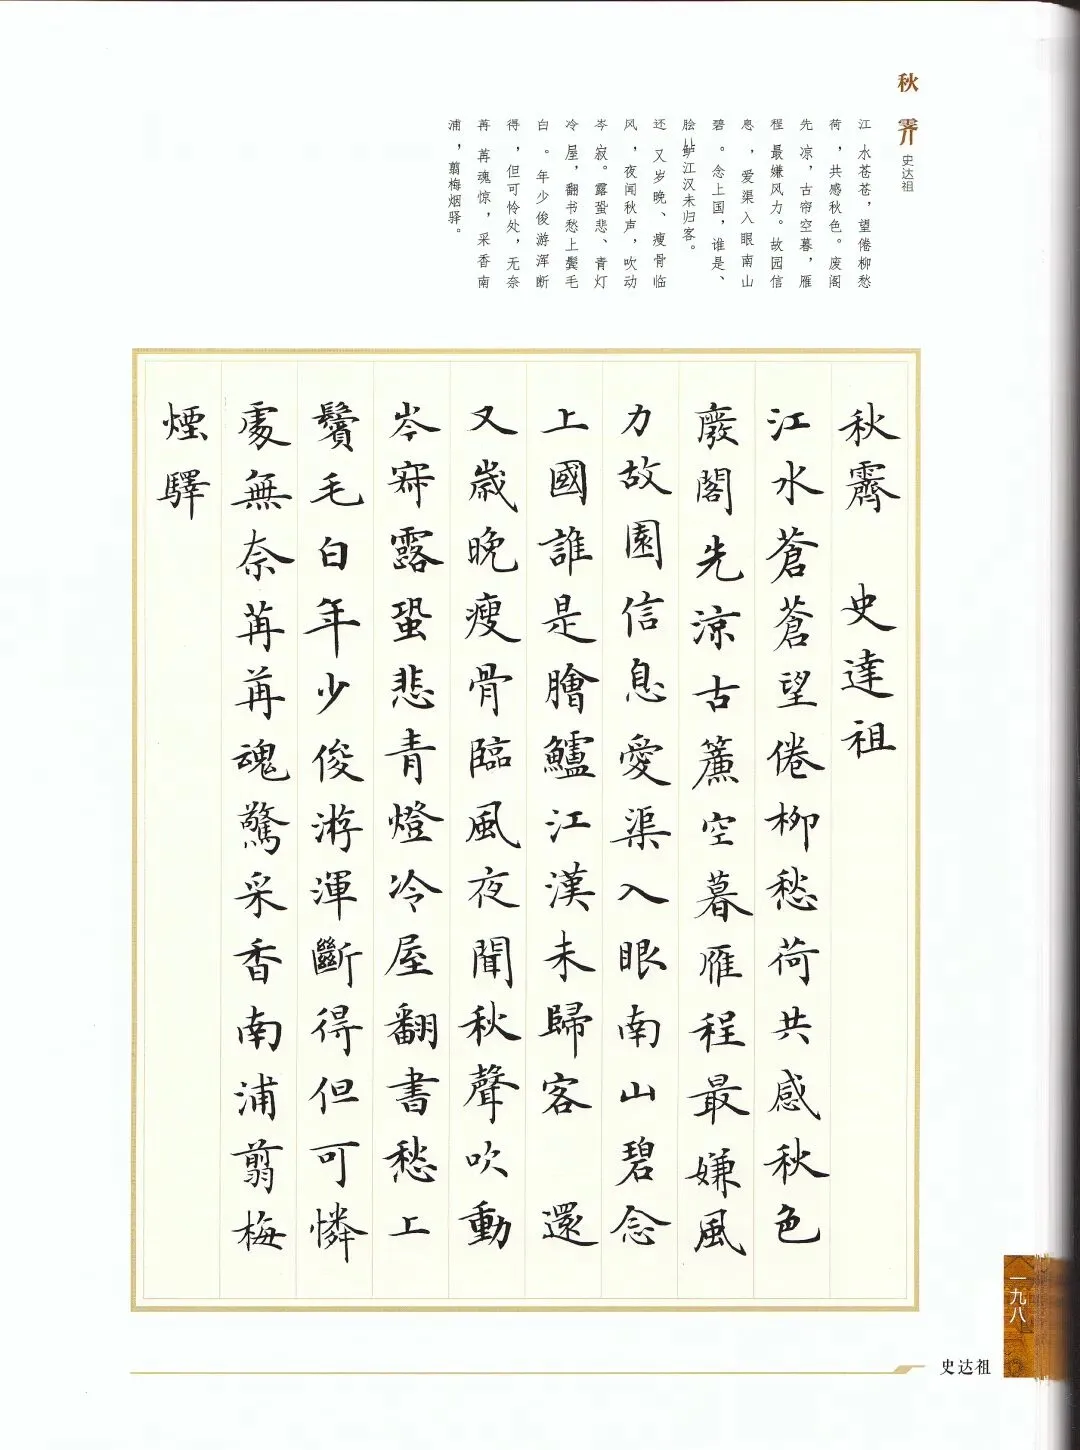 秋霁
史达祖
江水苍苍，望倦柳愁
荷，共感秋色。废阁
先凉，古帘空暮，雁
程最嫌风力。故园信
息，爱渠入眼南山
碧。念上国，谁是、
脍鲈江汉未归客。
还又岁晚、瘦骨临
风，夜闻秋声，吹动
岑寂。露蛩悲、青灯
冷屋，翻书愁上鬓毛
白。年少俊游浑断
得，但可怜处，无奈
苒苒魂惊，采香南
浦，翦梅烟驿。
秋霽 史達祖
江水蒼蒼望倦柳愁荷共感秋色
廢閣先涼古簾空暮雁程最嫌風
力故園信息愛渠入眼南山碧念
上國誰是膾鱸江漢未歸客 還
又歲晚瘦骨臨風夜聞秋聲吹動
岑寂露蛩悲青燈冷屋翻書愁上
鬢毛白年少俊游渾斷得但可憐
處無奈苒苒魂驚采香南浦翦梅
煙驛
一九八
史达祖